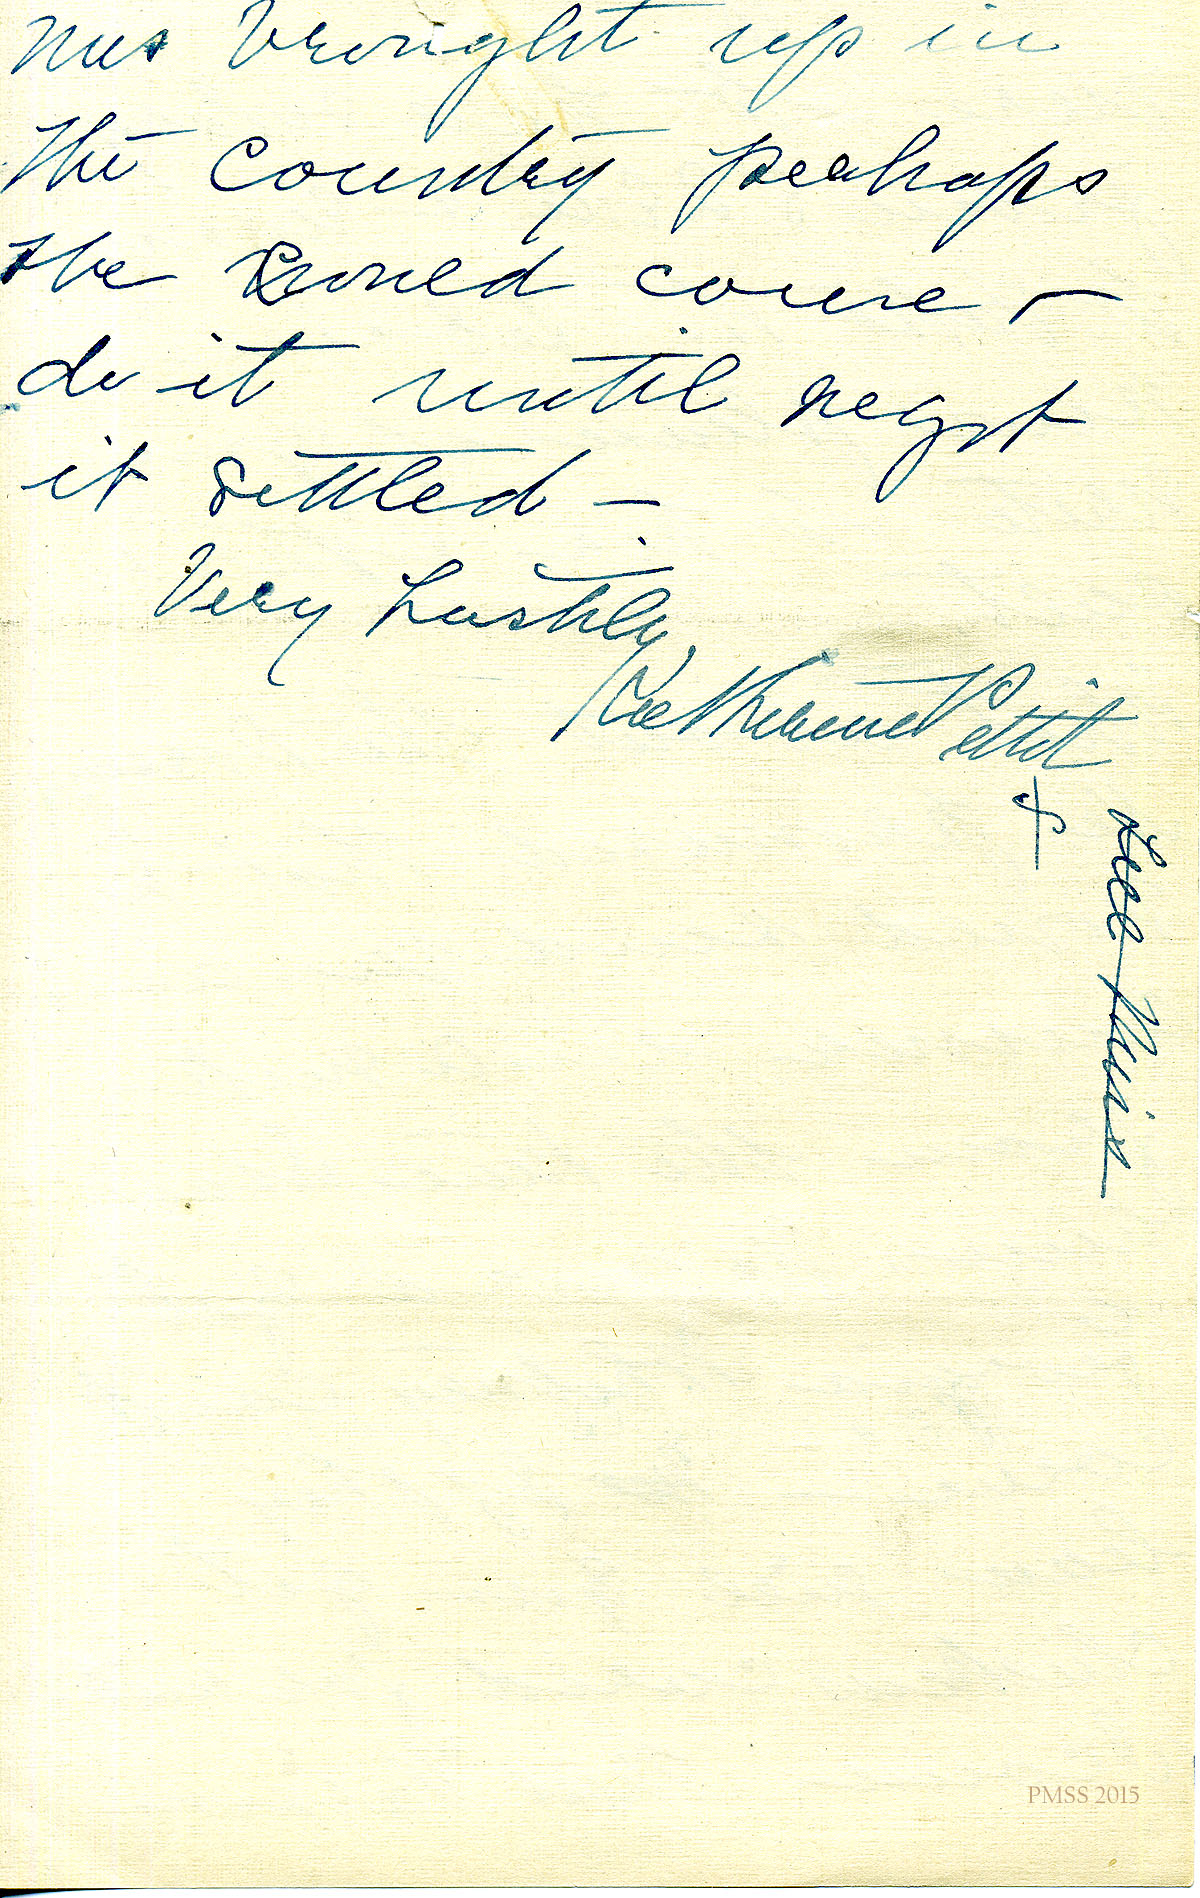 was brought up in
the country perhaps
she would come —
do it until we get
it settled —
Very hastily,
Katherine Pettit
PMSS 2015